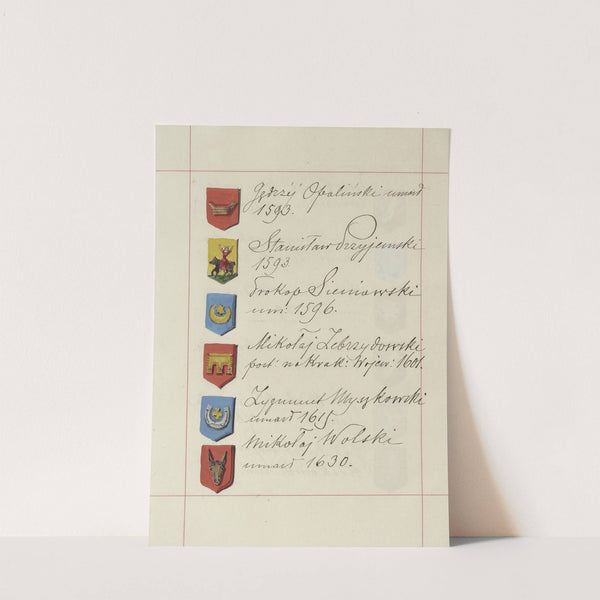 Jędrzéj Opaliński umarł
1593.
Stanisław Przyjemski
1593
Prokop Sieniawski
um: 1596.
Mikołaj Zebrzydowski
post: na Krak: Wojew: 1601.
Zygmunt Myszkowski
umarł 1615.
Mikołaj Wolski
umarł 1630.